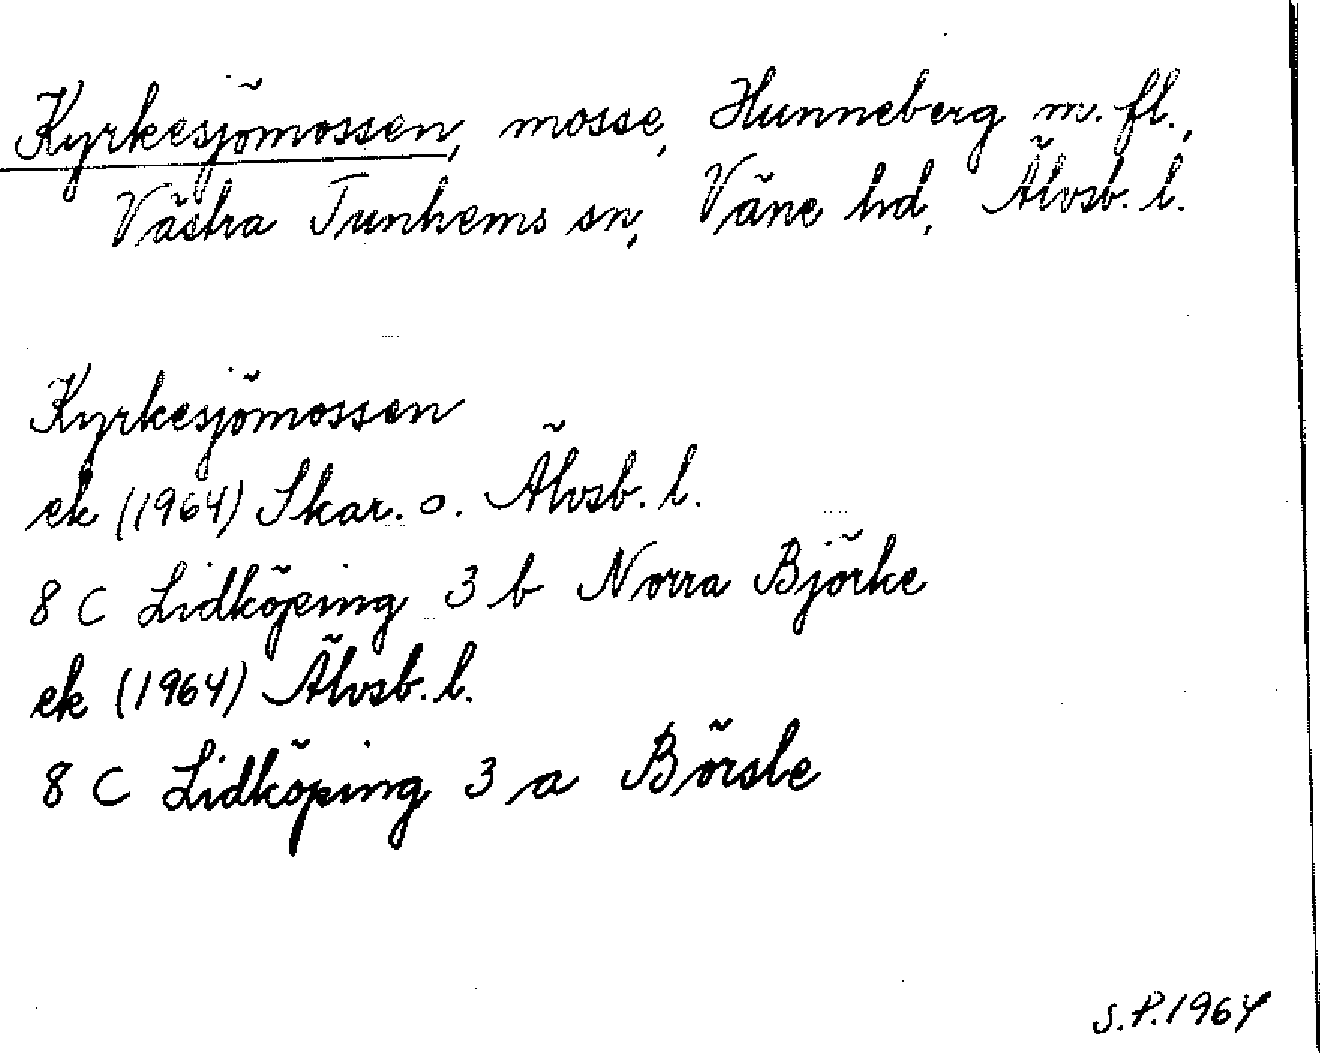 Kyrkesjömossen, mosse, Hunneberg m. fl.,
Västra Tunhems sn, Väne hd, Älvsb. l.
Kyrkesjömossen
ek (1964) Skar. o. Älvsb. l.
8 C Lidköping 3 b Norra Björke
ek (1964) Älvsb. l.
8 C Lidköping 3 a Börsle
S.P. 1964